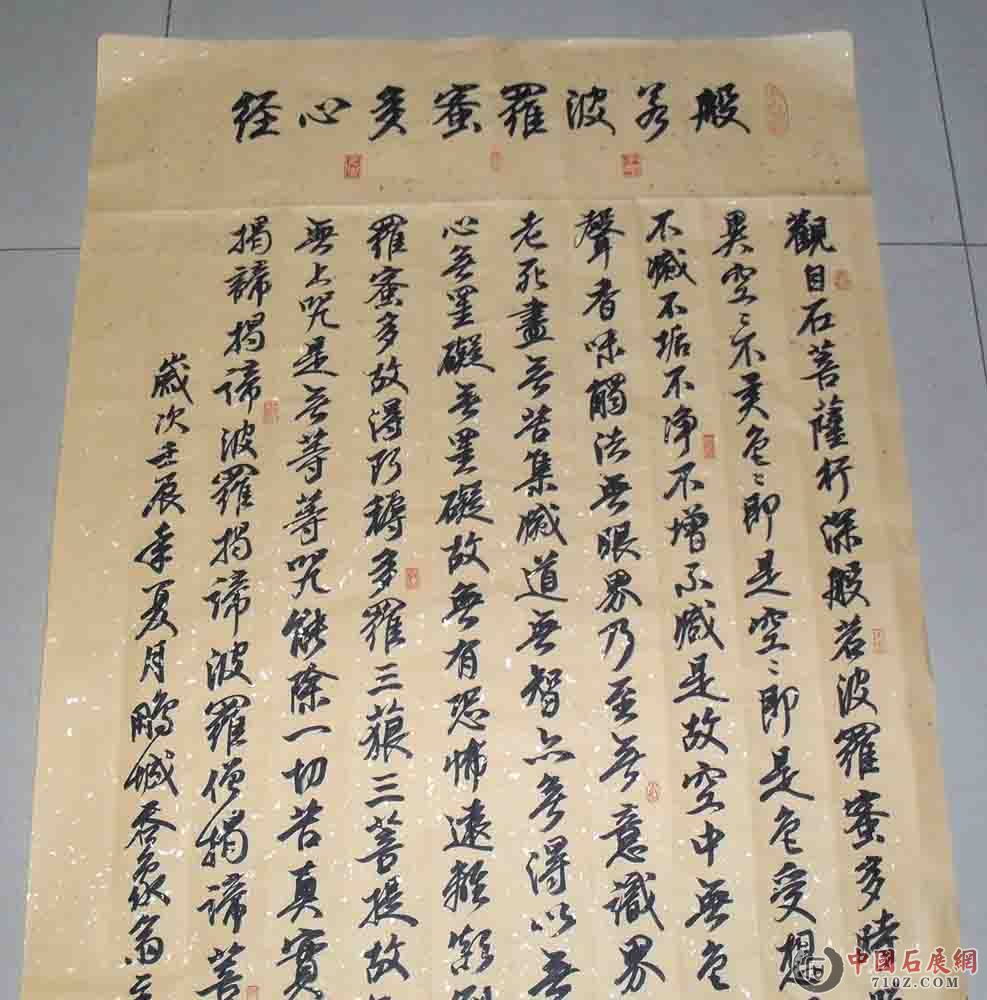 般若波羅蜜多心経
觀自在菩薩行深般若波羅蜜多時
異空〻不異色〻即是空〻即是色受想
不滅不垢不净不增不減是故空中無色
聲香味觸法無眼界乃至無意識界
老死盡無苦集滅道無智亦無得以無
心無罣礙無罣礙故無有恐怖遠離顛倒
羅蜜多故得阿耨多羅三藐三菩提故
無上咒是無等等咒能除一切苦真實
揭諦揭諦波羅揭諦波羅僧揭諦菩
歲次壬辰季夏月鵬城香象翁
中國石展網
710Z.COM